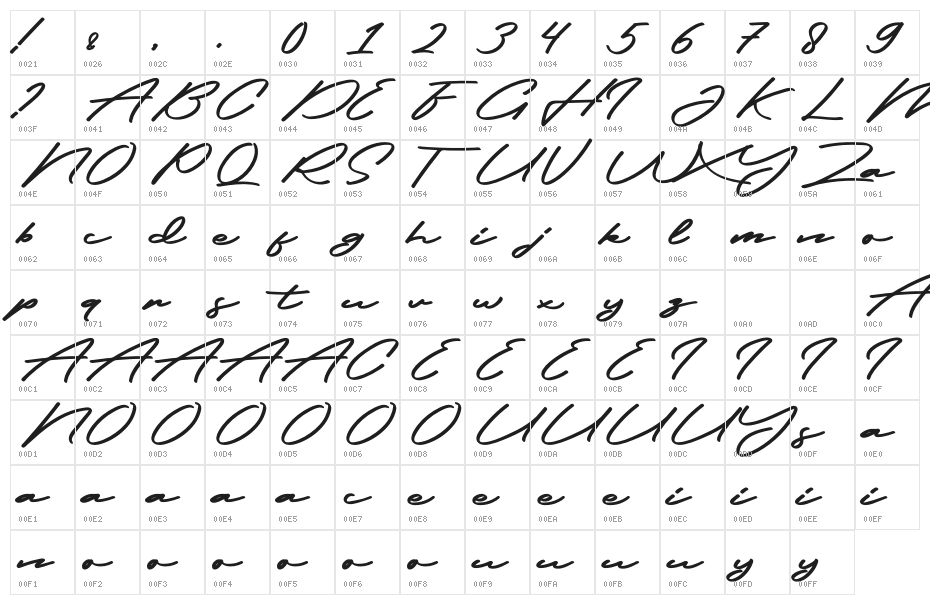 ! & , . 0 1 2 3 4 5 6 7 8 9
0021 0026 002C 002E 0030 0031 0032 0033 0034 0035 0036 0037 0038 0039
? A B C D E F G H I J K L M
003F 0041 0042 0043 0044 0045 0046 0047 0048 0049 004A 004B 004C 004D
N O P Q R S T U V W X Y Z a
004E 004F 0050 0051 0052 0053 0054 0055 0056 0057 0058 0059 005A 0061
b c d e f g h i j k l m n o
0062 0063 0064 0065 0066 0067 0068 0069 006A 006B 006C 006D 006E 006F
p q r s t u v w x y z A
0070 0071 0072 0073 0074 0075 0076 0077 0078 0079 007A 00A0 00AD 00C0
A A A A A C E E E E I I I I
00C1 00C2 00C3 00C4 00C5 00C7 00C8 00C9 00CA 00CB 00CC 00CD 00CE 00CF
N O O O O O O U U U U Y s a
00D1 00D2 00D3 00D4 00D5 00D6 00D8 00D9 00DA 00DB 00DC 00DD 00DF 00E0
a a a a a c e e e e i i i i
00E1 00E2 00E3 00E4 00E5 00E7 00E8 00E9 00EA 00EB 00EC 00ED 00EE 00EF
n o o o o o o u u u u y y
00F1 00F2 00F3 00F4 00F5 00F6 00F8 00F9 00FA 00FB 00FC 00FD 00FF